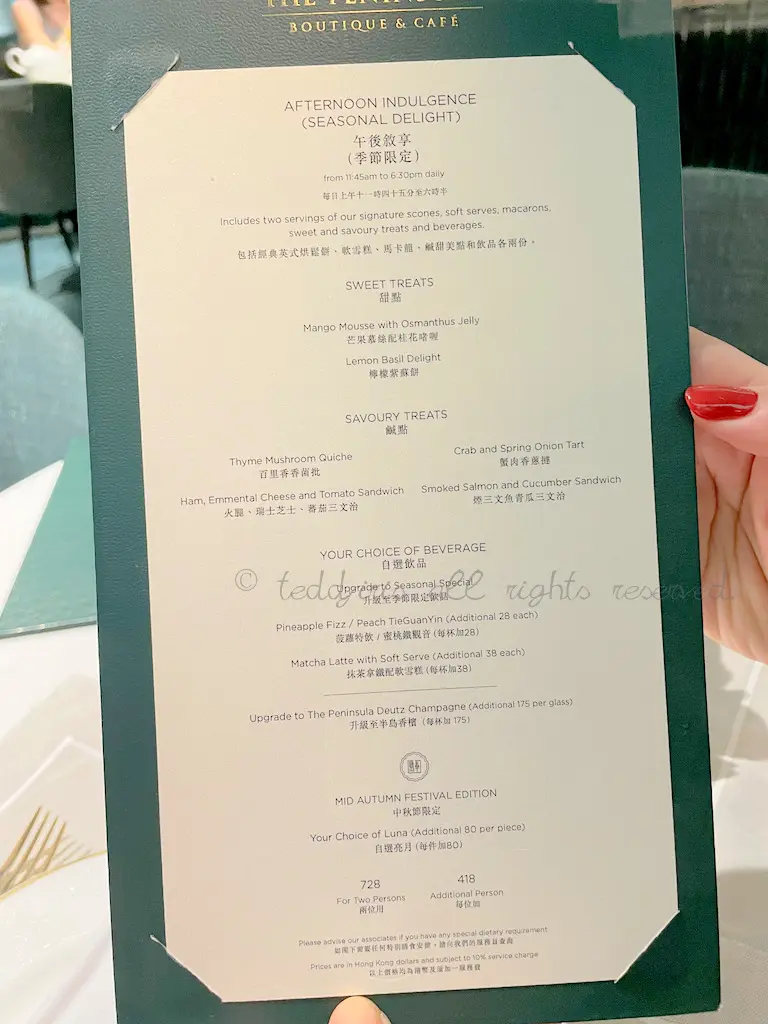 THE PENINSULA
BOUTIQUE & CAFÉ
AFTERNOON INDULGENCE
(SEASONAL DELIGHT)
午後敘享
(季節限定)
from 11:45am to 6:30pm daily
每日上午十一時四十五分至六時半
Includes two servings of our signature scones, soft serves, macarons,
sweet and savoury treats and beverages.
包括經典英式烘鬆餅、軟雪糕、馬卡龍、鹹甜美點和飲品各兩份。
SWEET TREATS
甜點
Mango Mousse with Osmanthus Jelly
芒果慕絲配桂花啫喱
Lemon Basil Delight
檸檬紫蘇餅
SAVOURY TREATS
鹹點
Thyme Mushroom Quiche
百里香香菌批
Crab and Spring Onion Tart
蟹肉香蔥撻
Ham, Emmental Cheese and Tomato Sandwich
火腿、瑞士芝士、蕃茄三文治
Smoked Salmon and Cucumber Sandwich
煙三文魚青瓜三文治
YOUR CHOICE OF BEVERAGE
自選飲品
© teddyius all rights reserved.
Upgrade to Seasonal Special
升級至季節限定飲品
Pineapple Fizz / Peach TieGuanYin (Additional 28 each)
菠蘿特飲 / 蜜桃鐵觀音 (每杯加28)
Matcha Latte with Soft Serve (Additional 38 each)
抹茶拿鐵配軟雪糕 (每杯加38)
Upgrade to The Peninsula Deutz Champagne (Additional 175 per glass)
升級至半島香檳 (每杯加 175)
MID AUTUMN FESTIVAL EDITION
中秋節限定
Your Choice of Luna (Additional 80 per piece)
自選亮月 (每件加80)
728
For Two Persons
兩位用
418
Additional Person
每位加
Please advise our associates if you have any special dietary requirement
如閣下需要任何特別膳食安排，請向我們的服務員查詢
Prices are in Hong Kong dollars and subject to 10% service charge
以上價格均為港幣及須加一服務費